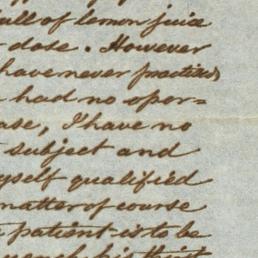 ull of lemon juice
dose. However
have never practised
had no opor=
ase, I have no
subject and
yself qualified
matter of course
patient is to be
quench his thirst